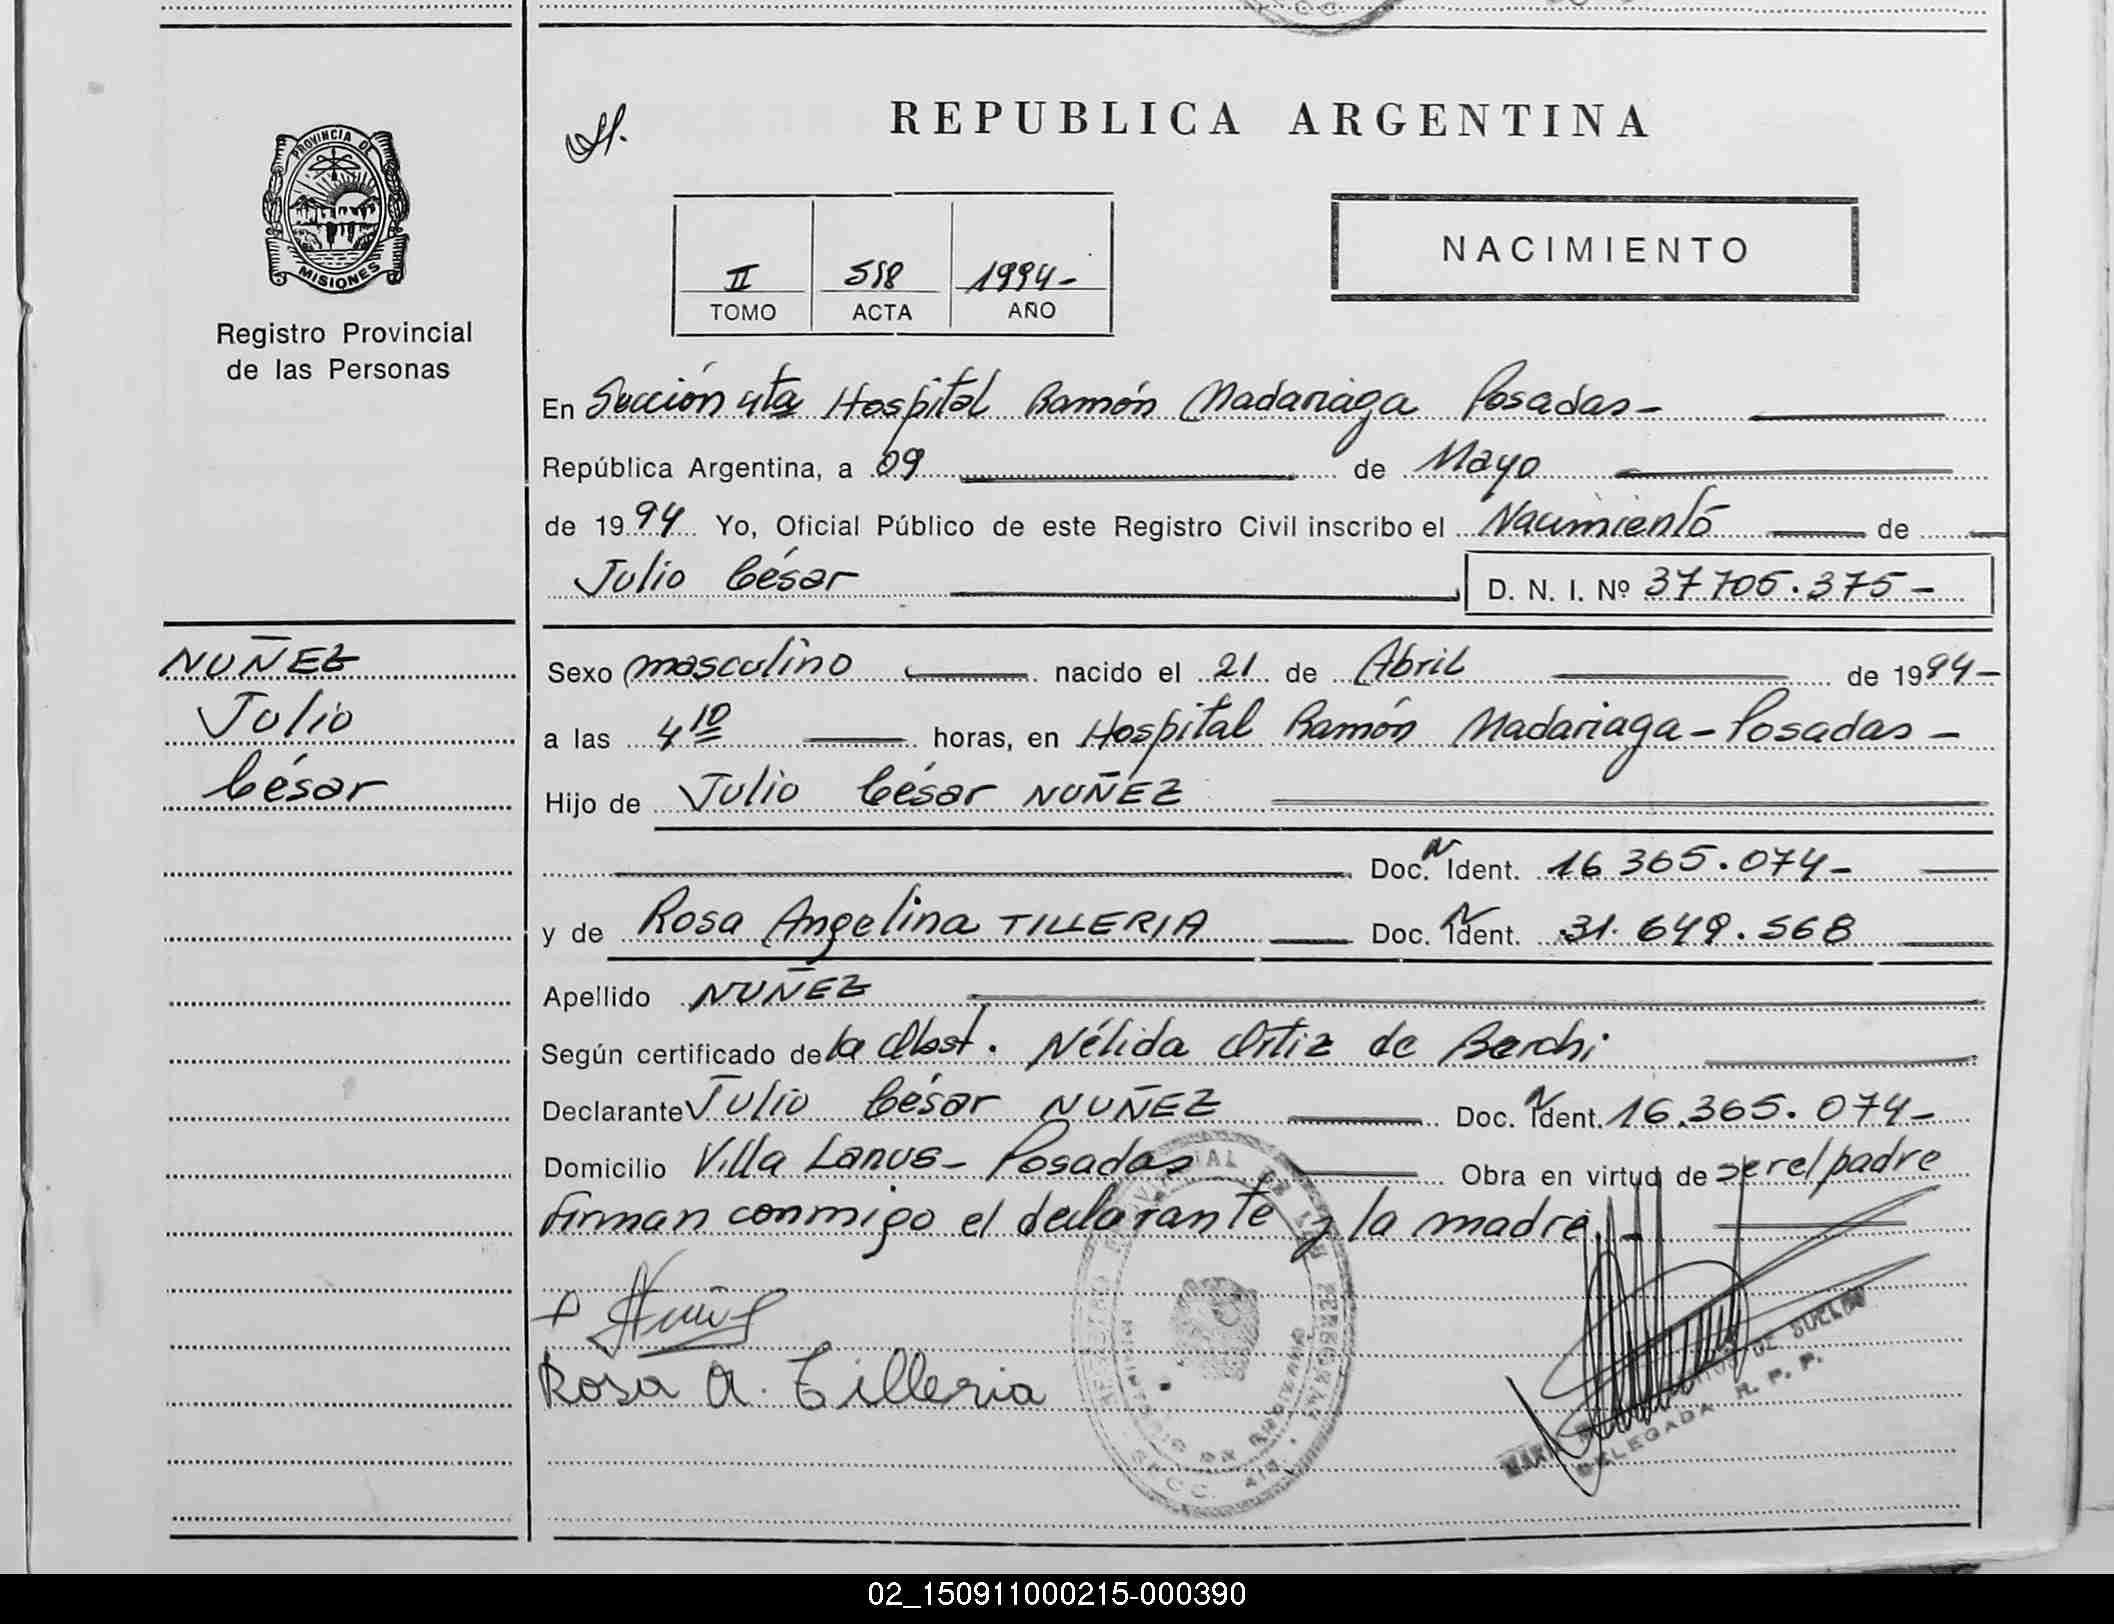 REPUBLICA ARGENTINA
PROVINCIA DE
MISIONES
Registro Provincial
de las Personas
II 518 1994-
TOMO ACTA AÑO
NACIMIENTO
En Sección 4ta Hospital Ramón Madariaga Posadas-
República Argentina, a 09 de Mayo
de 1994 Yo, Oficial Público de este Registro Civil inscribo el Nacimiento de
Julio César D. N. I. Nº 37 705.375-
NUÑEZ
Julio
César
Sexo masculino nacido el 21 de Abril de 1994-
a las 4 10 horas, en Hospital Ramón Madariaga - Posadas -
Hijo de Julio César NUÑEZ
Doc. N Ident. 16 365.074-
y de Rosa Angelina TILLERIA Doc. N Ident. 31.649.568
Apellido NUÑEZ
Según certificado de la Obst. Nélida Ortiz de Berchi
Declarante Julio César NUÑEZ Doc. N Ident. 16.365.074-
Domicilio Villa Lanus - Posadas Obra en virtud de ser el padre
Firman conmigo el declarante y la madre.-
Nuñez
Rosa A. Tilleria
DE SUCLEN
DELEGADA R. P. P.
02_150911000215-000390